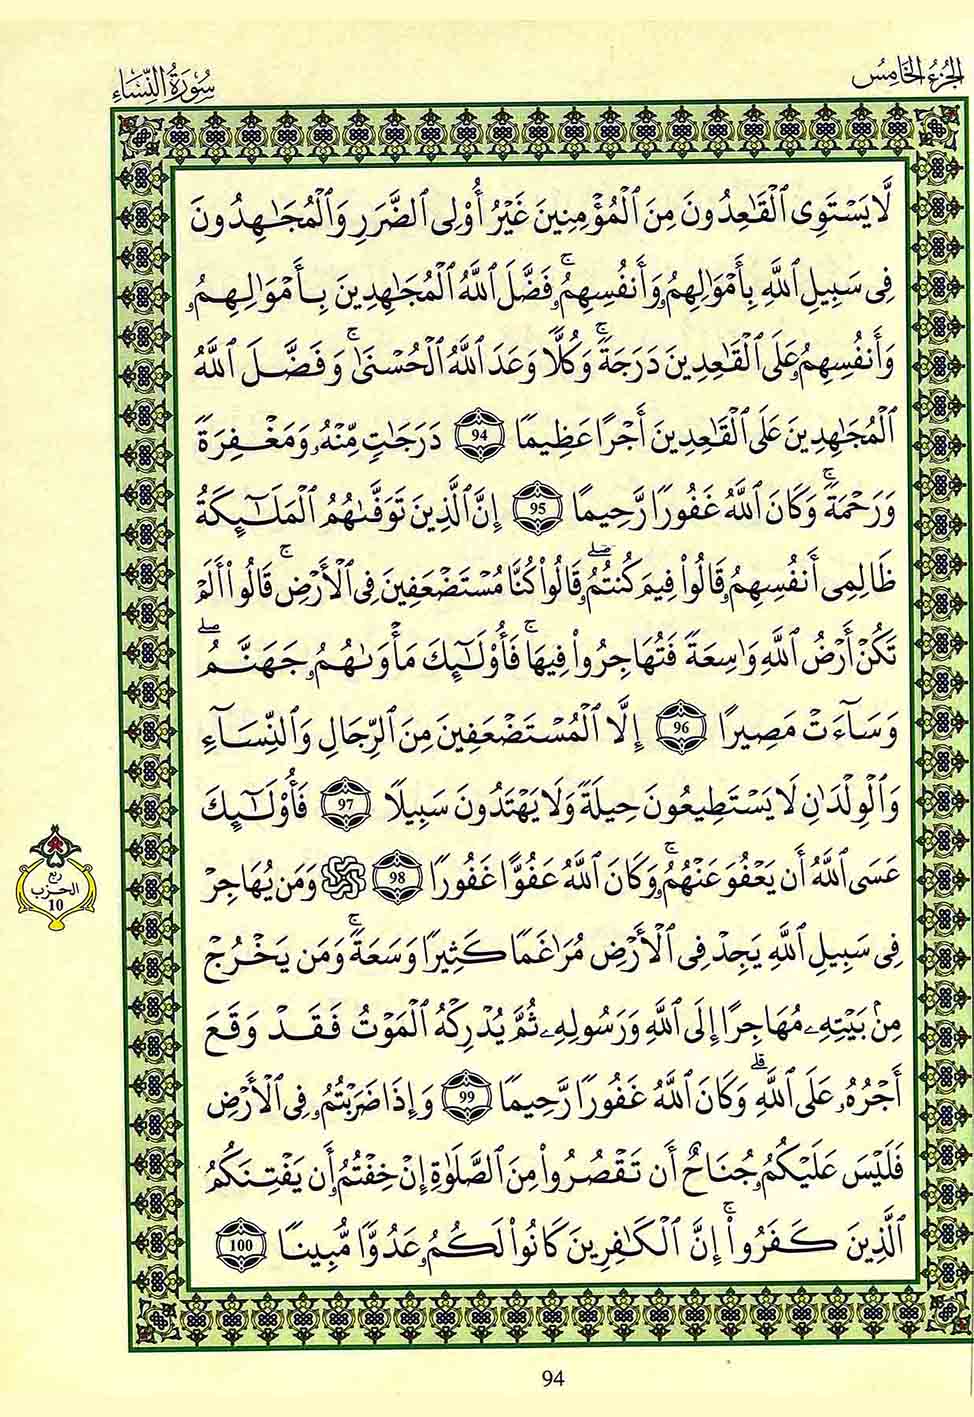 الجزء الخامس
سورة النساء
لَّا يَسْتَوِى اِ۬لْقَٰعِدُونَ مِنَ اَ۬لْمُؤْمِنِينَ غَيْرُ أُوْلِى اِ۬لضَّرَرِ وَالْمُجَٰهِدُونَ
فِى سَبِيلِ اِ۬للَّهِ بِأَمْوَٰلِهِمُۥ وَأَنفُسِهِمُۥۚ فَضَّلَ اَ۬للَّهُ اُ۬لْمُجَٰهِدِينَ بِأَمْوَٰلِهِمُۥ
وَأَنفُسِهِمُۥ عَلَى اَ۬لْقَٰعِدِينَ دَرَجَةٗۚ وَكُلّٗا وَعَدَ اَ۬للَّهُ اُ۬لْحُسْنَىٰۚ وَفَضَّلَ اَ۬للَّهُ
اُ۬لْمُجَٰهِدِينَ عَلَى اَ۬لْقَٰعِدِينَ أَجْرًا عَظِيمٗا 94 دَرَجَٰتٖ مِّنْهُۥ وَمَغْفِرَةٗ
وَرَحْمَةٗۚ وَكَانَ اَ۬للَّهُ غَفُورٗا رَّحِيمًا 95 إِنَّ اَ۬لَّذِينَ تَوَفَّىٰهُمُ اُ۬لْمَلَٰٓئِكَةُ
ظَالِمِى أَنفُسِهِمُۥ قَالُواْ فِيمَ كُنتُمُۥۖ قَالُواْ كُنَّا مُسْتَضْعَفِينَ فِى اِ۬لْأَرْضِۚ قَالُواْ أَلَمْ
تَكُنْ أَرْضُ اُ۬للَّهِ وَٰسِعَةٗ فَتُهَاجِرُواْ فِيهَاۚ فَأُوْلَٰٓئِكَ مَأْوَىٰهُمُۥ جَهَنَّمُۖ
وَسَآءَتْ مَصِيرًا 96 إِلَّا اَ۬لْمُسْتَضْعَفِينَ مِنَ اَ۬لرِّجَالِ وَالنِّسَآءِ
وَالْوِلْدَٰنِ لَا يَسْتَطِيعُونَ حِيلَةٗ وَلَا يَهْتَدُونَ سَبِيلٗا 97 فَأُوْلَٰٓئِكَ
عَسَى اَ۬للَّهُ أَن يَعْفُوَ عَنْهُمُۥۚ وَكَانَ اَ۬للَّهُ عَفُوًّا غَفُورٗا 98 وَمَن يُهَاجِرْ
ربع الحزب 10
فِى سَبِيلِ اِ۬للَّهِ يَجِدْ فِى اِ۬لْأَرْضِ مُرَٰغَمٗا كَثِيرٗا وَسَعَةٗۚ وَمَن يَخْرُجْ
مِنۢ بَيْتِهِۦ مُهَاجِرًا إِلَى اَ۬للَّهِ وَرَسُولِهِۦ ثُمَّ يُدْرِكْهُ اُ۬لْمَوْتُ فَقَدْ وَقَعَ
أَجْرُهُۥ عَلَى اَ۬للَّهِۗ وَكَانَ اَ۬للَّهُ غَفُورٗا رَّحِيمٗا 99 وَإِذَا ضَرَبْتُمُۥ فِى اِ۬لْأَرْضِ
فَلَيْسَ عَلَيْكُمُۥ جُنَاحٌ أَن تَقْصُرُواْ مِنَ اَ۬لصَّلَوٰةِ إِنْ خِفْتُمُۥ أَن يَفْتِنَكُمُ
اُ۬لَّذِينَ كَفَرُواْۚ إِنَّ اَ۬لْكَٰفِرِينَ كَانُواْ لَكُمُۥ عَدُوّٗا مُّبِينٗا 100
94